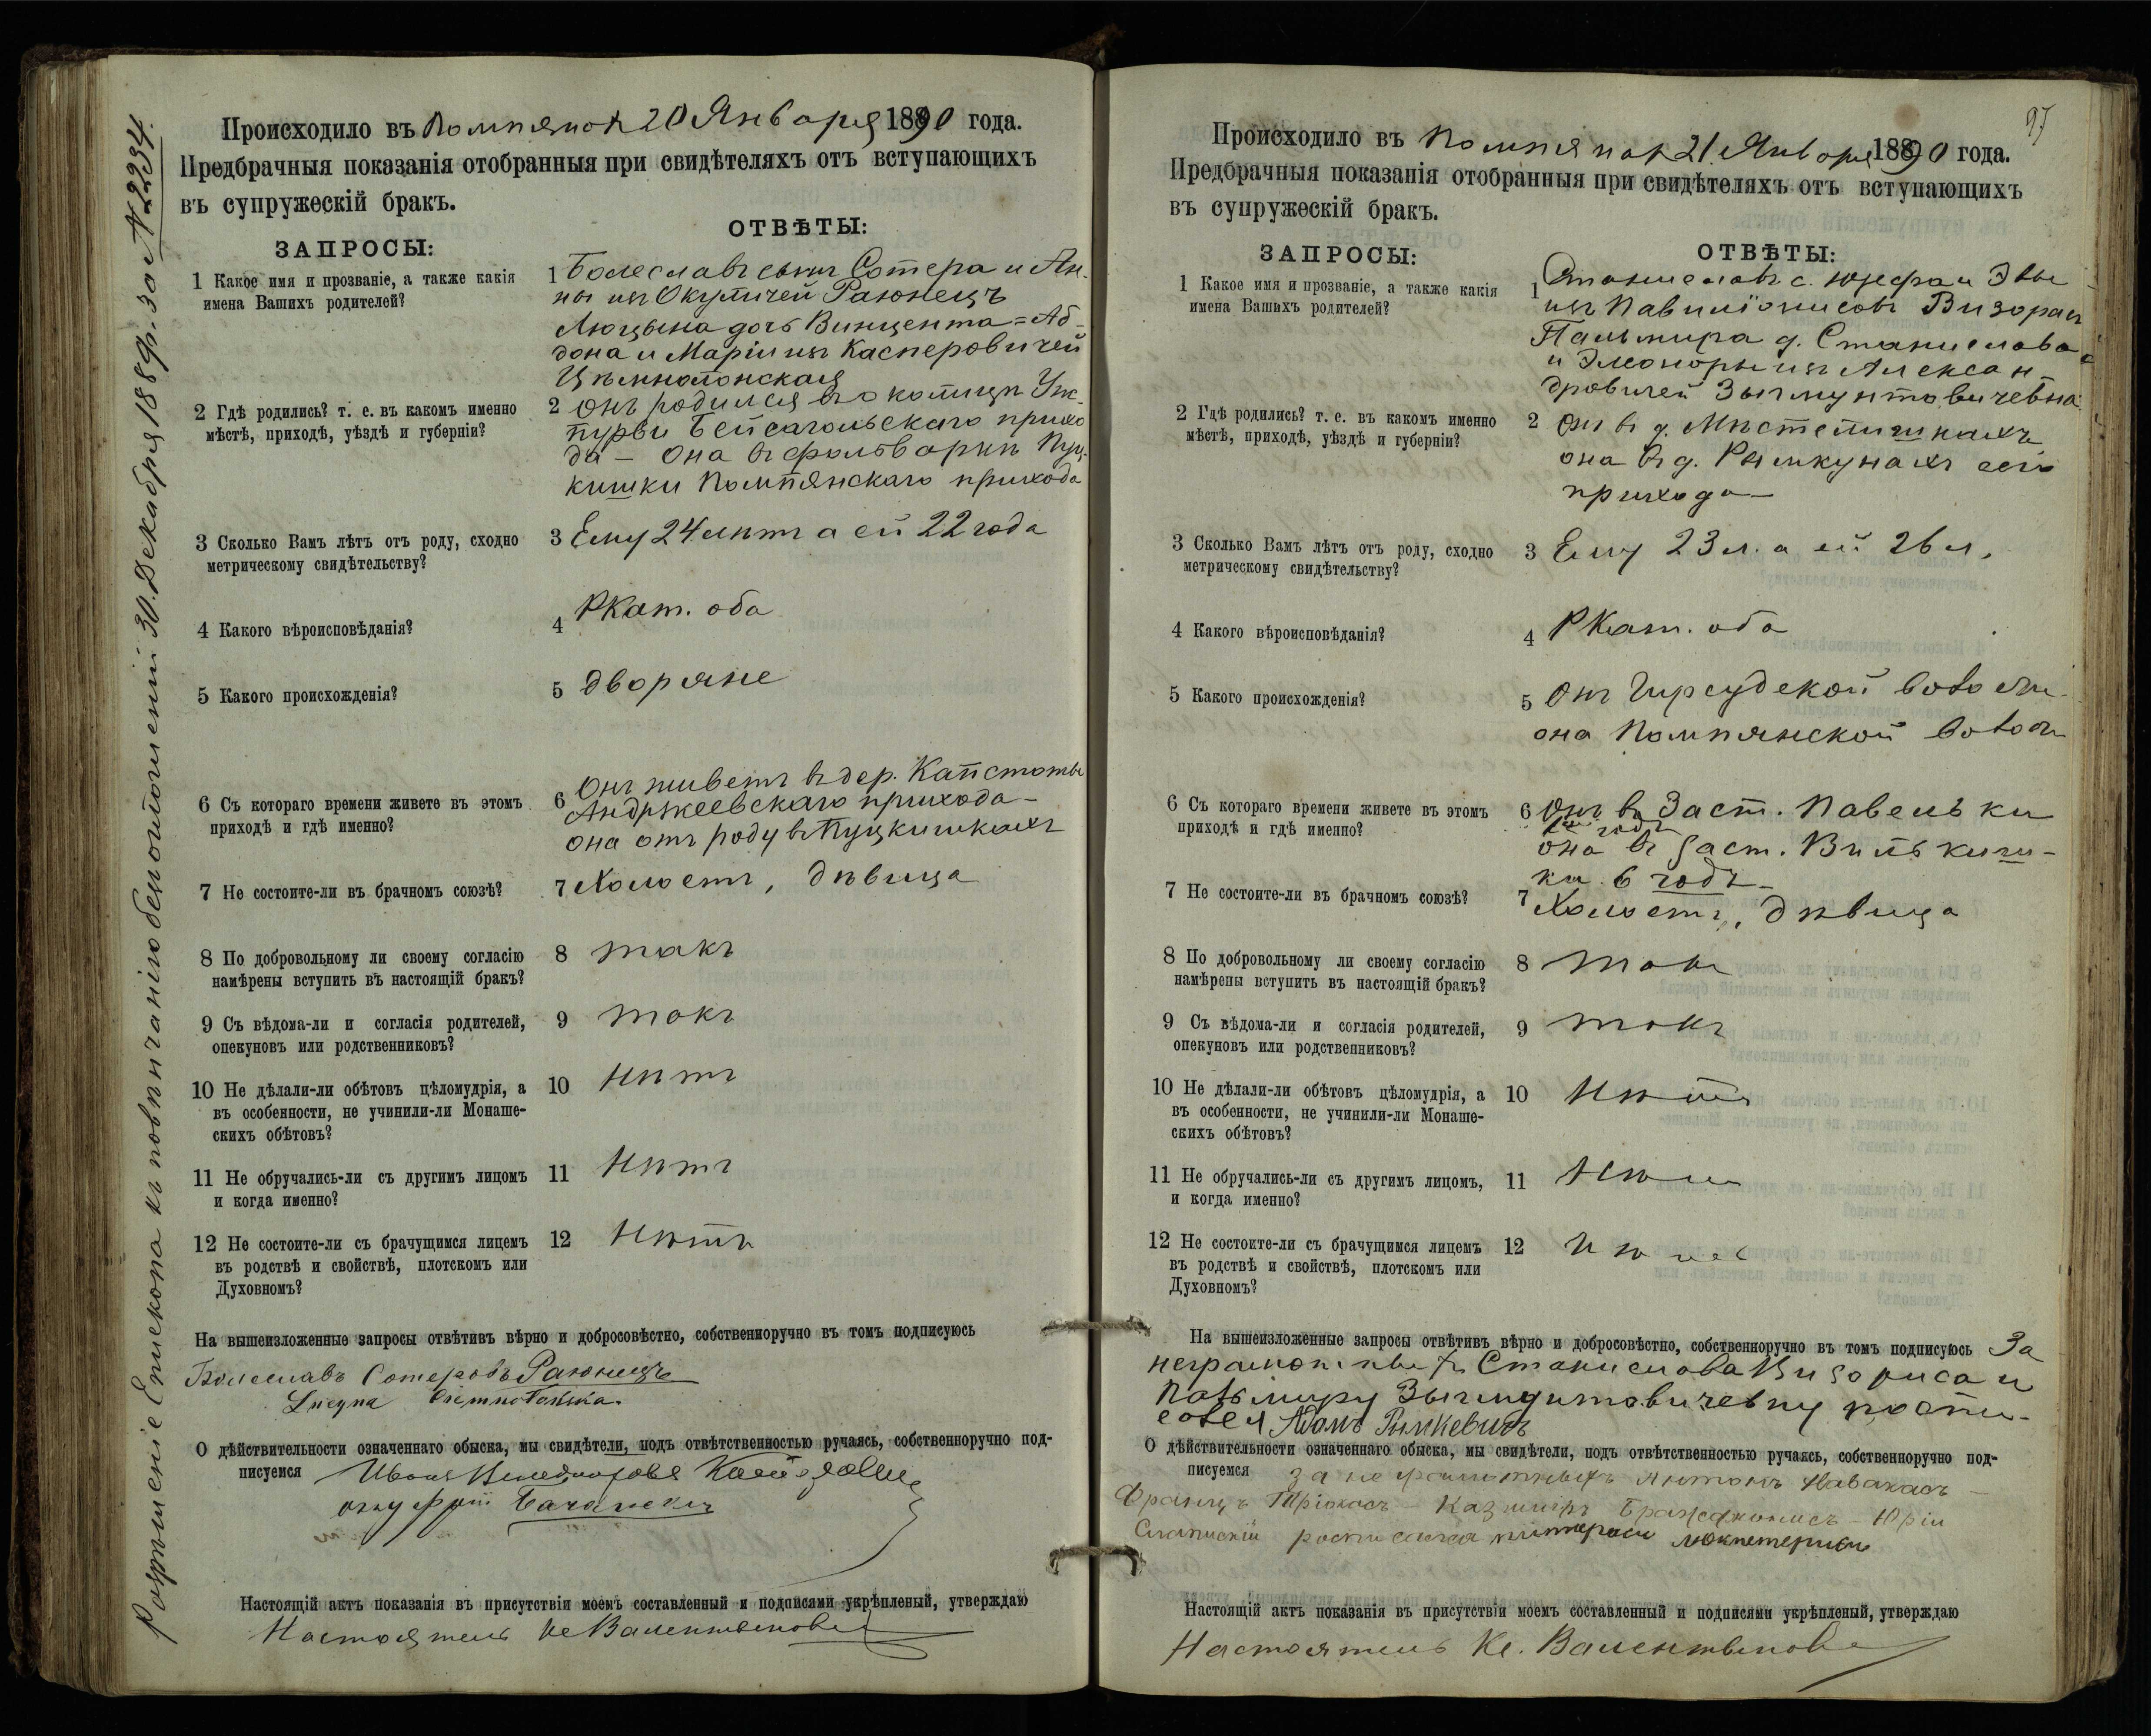 Разрѣшеніе Епископа къ повѣнчанію безъ оглашеній 30 Декабря 1889 г. за № 2234.
Происходило въ Помпянах 20 Января 1890 года.
Предбрачныя показанія отобранныя при свидѣтеляхъ отъ вступающихъ
въ супружескій бракъ.
ЗАПРОСЫ:
ОТВѢТЫ:
1 Какое имя и прозваніе, а также какія
имена Вашихъ родителей?
1 Болеславъ сынъ Сотера и Ан-
ны изъ Окуличей Раюнецъ
Люцына дочь Винцента=Аб-
дона и Маріи изъ Касперовичей
Цѣмнолонская
2 Гдѣ родились? т. е. въ какомъ именно
мѣстѣ, приходѣ, уѣздѣ и губерніи?
2 Онъ родился в околицѣ Уж-
пурви Бейсагольскаго прихо
да – Она въ фольваркѣ Пуц-
кишки Помпянскаго прихода
3 Сколько Вамъ лѣтъ отъ роду, сходно
метрическому свидѣтельству?
3 Ему 24 лѣтъ а ей 22 года
4 Какого вѣроисповѣданія?
4 РКат. оба
5 Какого происхожденія?
5 дворяне
6 Съ котораго времени живете въ этомъ
приходѣ и гдѣ именно?
6 Онъ живетъ въ дер. Капстаты
Андржеевскаго прихода –
она отъ роду в Пуцкишкахъ
7 Не состоите-ли въ брачномъ союзѣ?
7 Холостъ, дѣвица
8 По добровольному ли своему согласію
намѣрены вступить въ настоящій бракъ?
8 такъ
9 Съ вѣдома-ли и согласія родителей,
опекуновъ или родственниковъ?
9 такъ
10 Не дѣлали-ли обѣтовъ цѣломудрія, а
въ особенности, не учинили-ли Монаше-
скихъ обѣтовъ?
10 Нѣтъ
11 Не обручались-ли съ другимъ лицомъ
и когда именно?
11 Нѣтъ
12 Не состоите-ли съ брачущимся лицемъ
въ родствѣ и свойствѣ, плотскомъ или
Духовномъ?
12 Нѣтъ
На вышеизложенные запросы отвѣтивъ вѣрно и добросовѣстно, собственноручно въ томъ подписуюсь
Болеславъ Сотеровъ Раюнецъ
Lucyna Ciemnołońska.
О дѣйствительности означеннаго обыска, мы свидѣтели, подъ отвѣтственностью ручаясь, собственноручно под-
писуемся
Настоящій актъ показанія въ присутствіи моемъ составленный и подписями укрѣпленый, утверждаю
Настоятель Кс Валентынович
97
Происходило въ Помпянах 21 Января 1890 года.
Предбрачныя показанія отобранныя при свидѣтеляхъ отъ вступающихъ
въ супружескій бракъ.
ЗАПРОСЫ:
ОТВѢТЫ:
1 Какое имя и прозваніе, а также какія
имена Вашихъ родителей?
1 Станиславъ с. Юзефа и Эвы
изъ Павиліонисовъ Визорисъ
Пальмира д. Станислава
и Элеоноры изъ Алексан-
дровичей Зыгмунтовичевна
2 Гдѣ родились? т. е. въ какомъ именно
мѣстѣ, приходѣ, уѣздѣ и губерніи?
2 Онъ въ д. Мѣстелишкахъ
она въ д. Рымкунахъ сего
прихода –
3 Сколько Вамъ лѣтъ отъ роду, сходно
метрическому свидѣтельству?
3 Ему 23 л. а ей 26 л.
4 Какого вѣроисповѣданія?
4 РКат. оба
5 Какого происхожденія?
5 Онъ Гирсудской волости
она Помпянской волости
6 Съ котораго времени живете въ этомъ
приходѣ и гдѣ именно?
6 Онъ въ Заст. Павельки
она въ заст. Вилькиш-
ки 6 годъ –
7 Не состоите-ли въ брачномъ союзѣ?
7 Холостъ, дѣвица
8 По добровольному ли своему согласію
намѣрены вступить въ настоящій бракъ?
8 такъ
9 Съ вѣдома-ли и согласія родителей,
опекуновъ или родственниковъ?
9 такъ
10 Не дѣлали-ли обѣтовъ цѣломудрія, а
въ особенности, не учинили-ли Монаше-
скихъ обѣтовъ?
10 Нѣтъ
11 Не обручались-ли съ другимъ лицомъ,
и когда именно?
11 Нѣтъ
12 Не состоите-ли съ брачущимся лицемъ
въ родствѣ и свойствѣ, плотскомъ или
Духовномъ?
12 Нѣтъ
На вышеизложенные запросы отвѣтивъ вѣрно и добросовѣстно, собственноручно въ томъ подписуюсь За
неграмотныхъ Станислава Визориса и
Пальмиру Зыгмунтовичевну роспи-
сался Адамъ Рымкевичъ
О дѣйствительности означеннаго обыска, мы свидѣтели, подъ отвѣтственностью ручаясь, собственноручно под-
писуемся За неграмотныхъ Антонъ Навакасъ –
Францъ – Казимиръ – Юрій
росписался
Настоящій актъ показанія въ присутствіи моемъ составленный и подписями укрѣпленый, утверждаю
Настоятель Кс. Валентынович